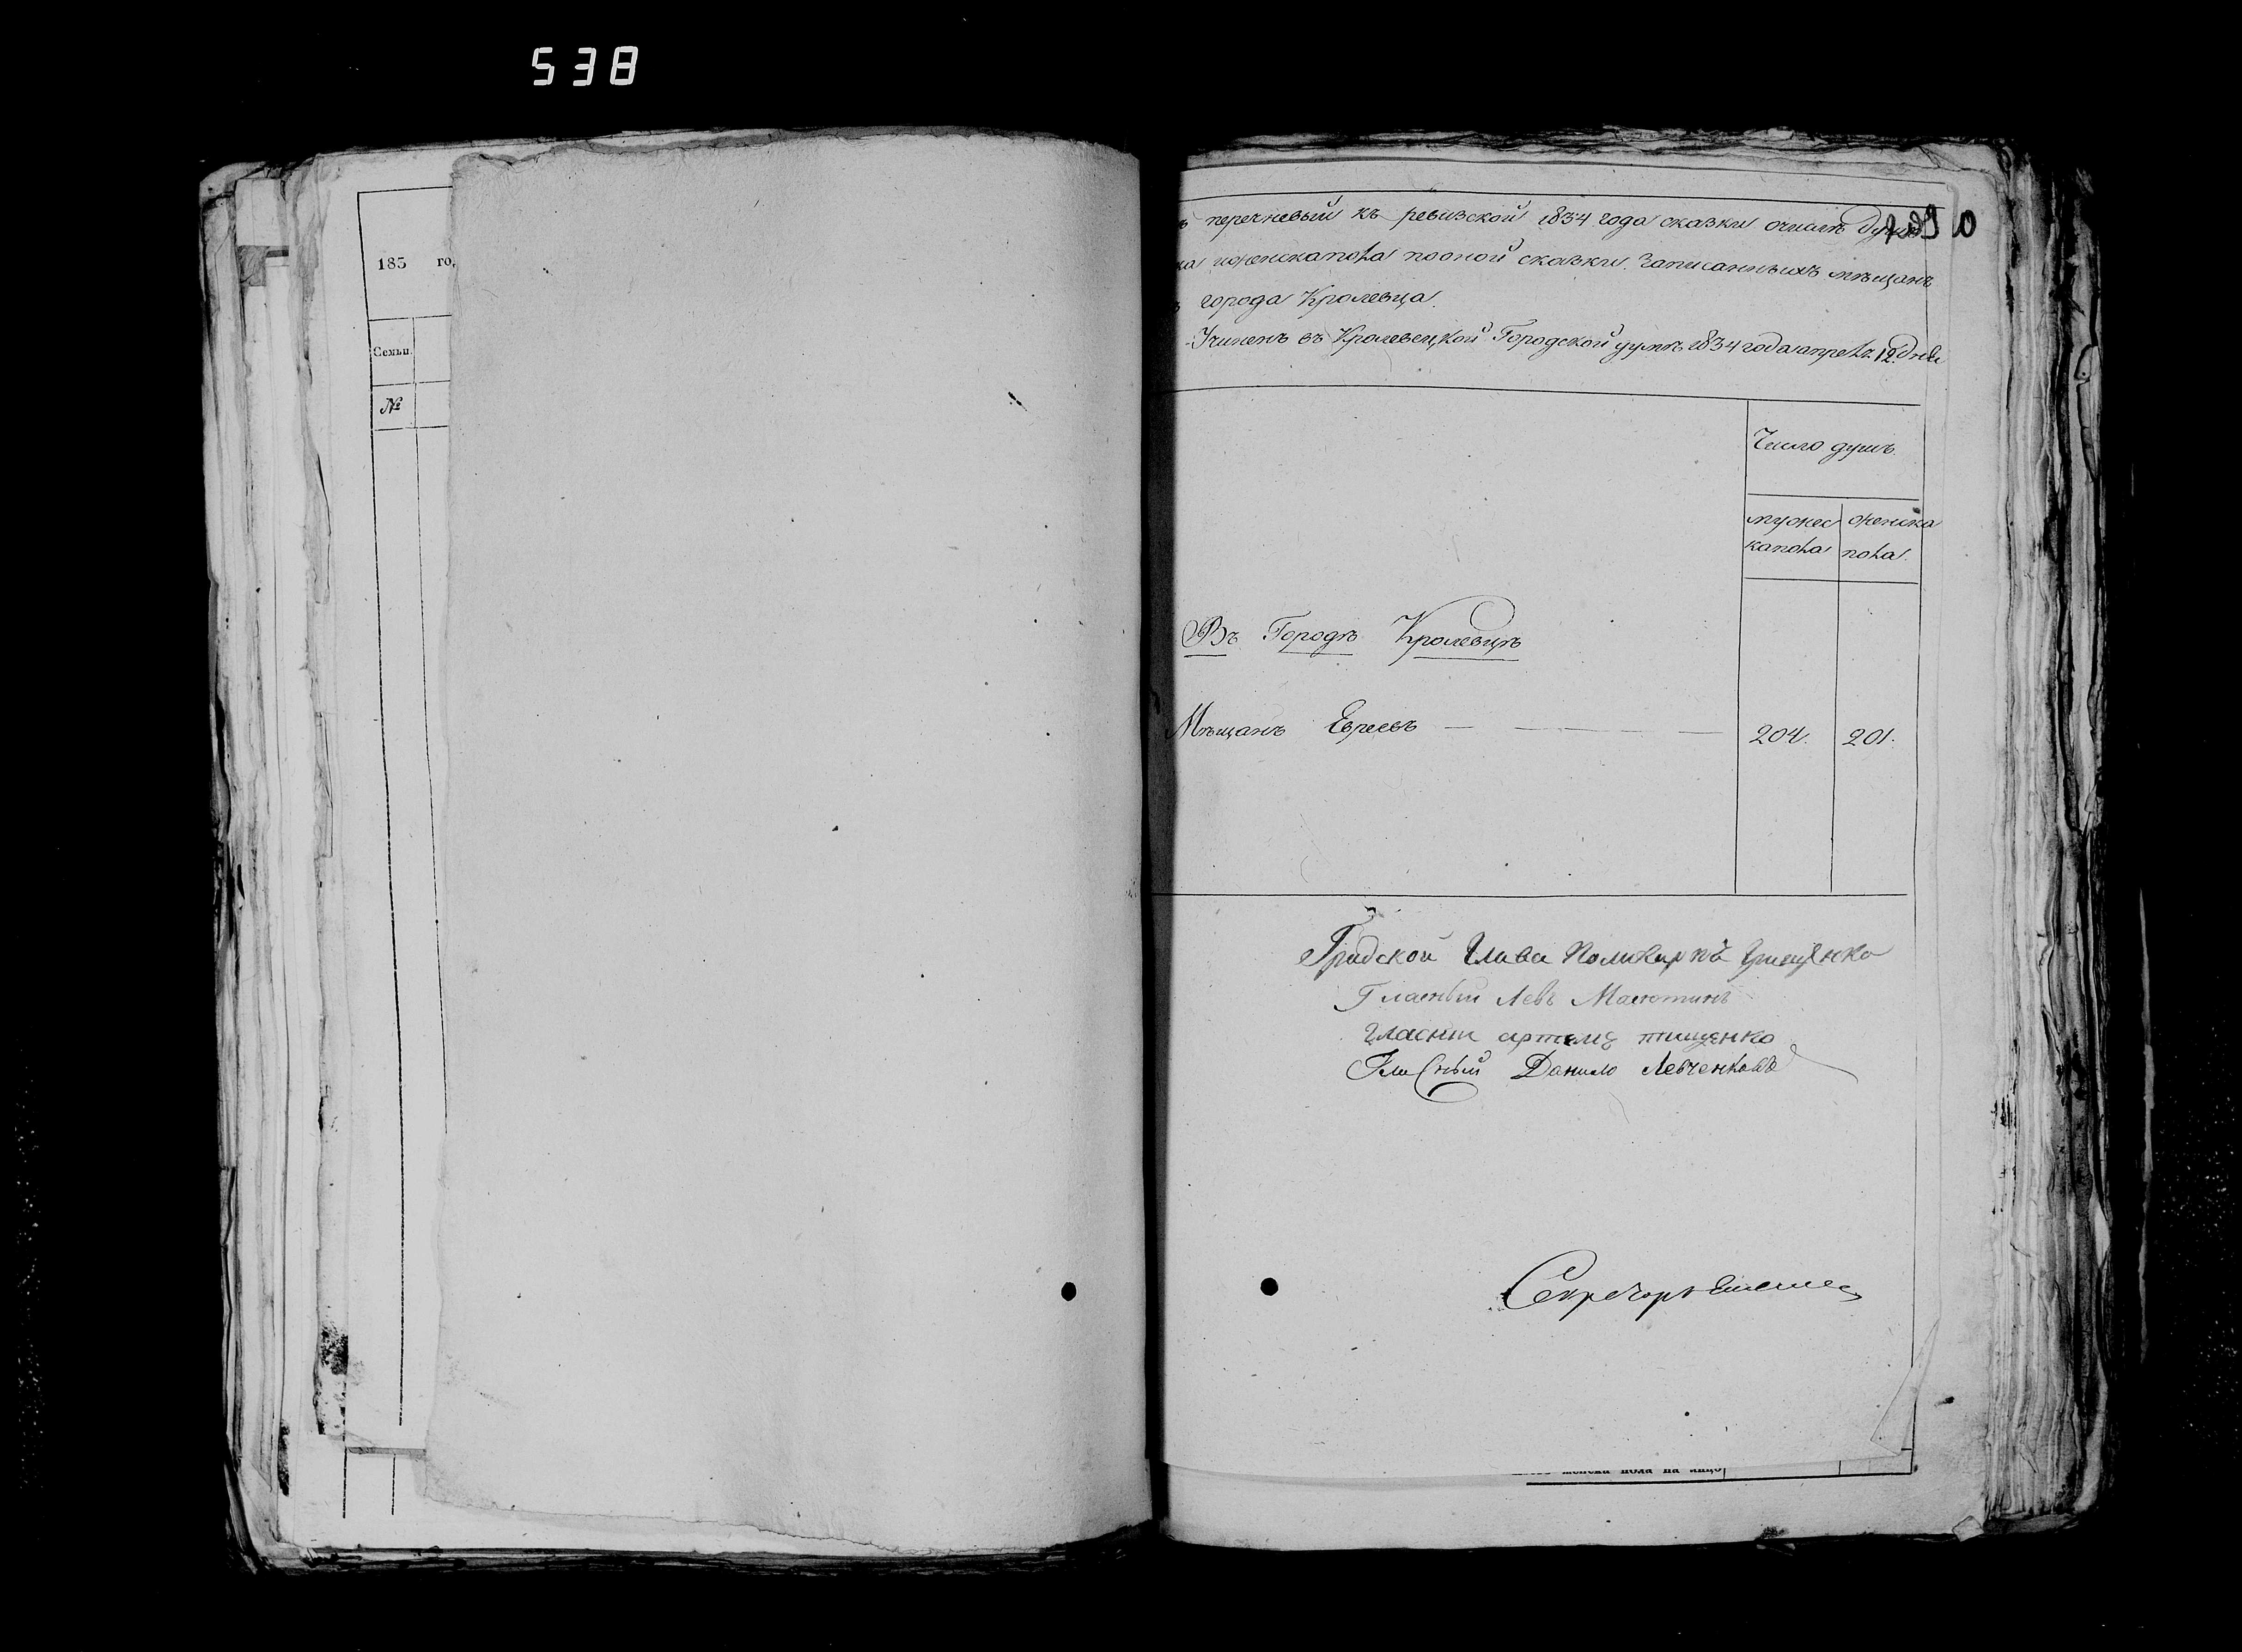 538
185 го,
Семьи.
№
ъ перечневый къ ревизской 1834 года сказки очислѣ душъ
ка иженскапола пооной сказки. Записанныхъ мѣщанъ
города Кролевца.
Учиненъ въ Кролевецкой Городской думѣ 1834 года апреля 12 дня
Число душъ.
мужес женска
капола пола.
Въ Городѣ Кролевцѣ
Мѣщанъ Евреевъ — — — — — 204. 201.
Градской Глава Поликарпъ Грищенко
Гласный Левъ Масютинъ
Гласни артемъ тищенко
Гласный Данило Левченковъ
Секретарь
женска пола на лицо